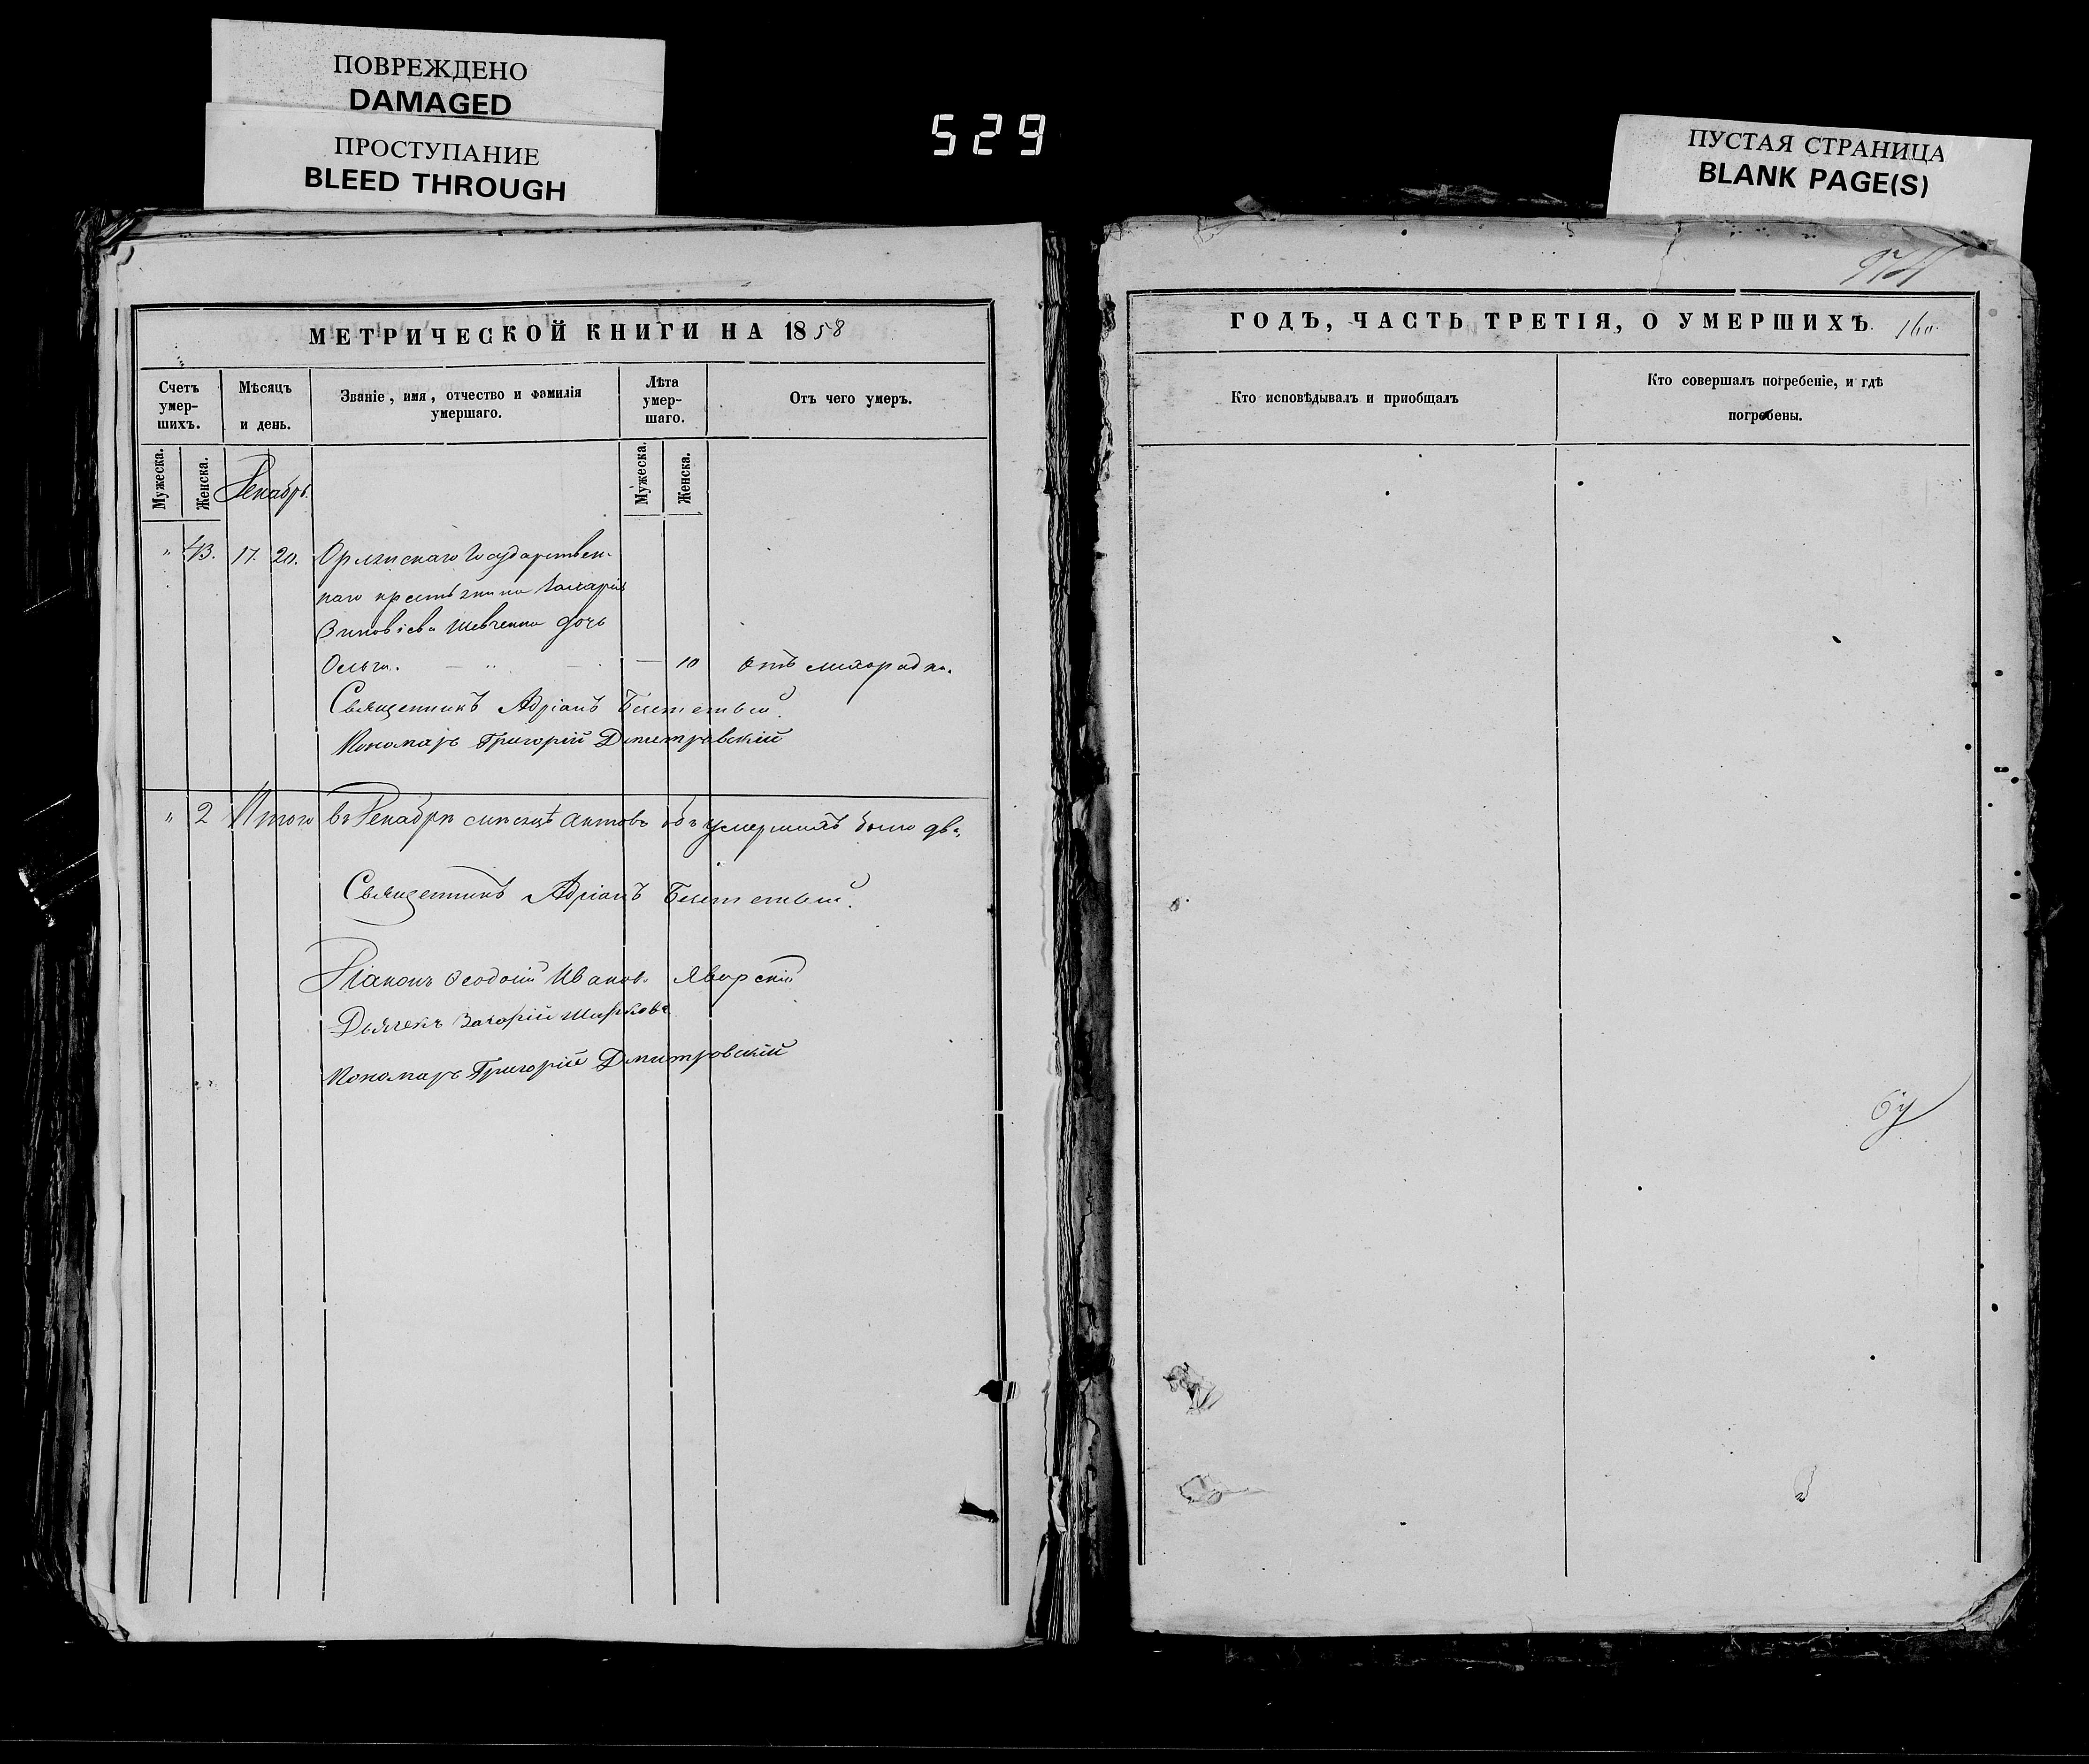 ПОВРЕЖДЕНО
DAMAGED
ПРОСТУПАНИЕ
BLEED THROUGH
529
ПУСТАЯ СТРАНИЦА
BLANK PAGE(S)
МЕТРИЧЕСКОЙ КНИГИ НА 1858
Счетъ умер-шихъ.
Мѣсяцъ и день.
Званіе, имя, отчество и фамилія умершаго.
Лѣта умер-шаго.
Отъ чего умеръ.
Мужеска.
Женска.
Декабрь.
Мужеска.
Женска.
" 43. 17. 20. Государствен-
наго крестьянина Захарія
Зиновіева Шевченка дочь
Ольга. — " — — 10 отъ лихорадки.
Священникъ Адріанъ
Пономарь Григорій Дмитровскій
" 2 Итого въ Декабрѣ мѣсяцѣ актовъ объ умершихъ было два,
Священникъ Адріанъ
Діаконъ Ѳеодосій Иванов. Яворскій
Дьячекъ Захарій
Пономарь Григорій Дмитровскій
ГОДЪ, ЧАСТЬ ТРЕТІЯ, О УМЕРШИХЪ. 160.
Кто исповѣдывалъ и приобщалъ
Кто совершалъ погребеніе, и гдѣ
погребены.